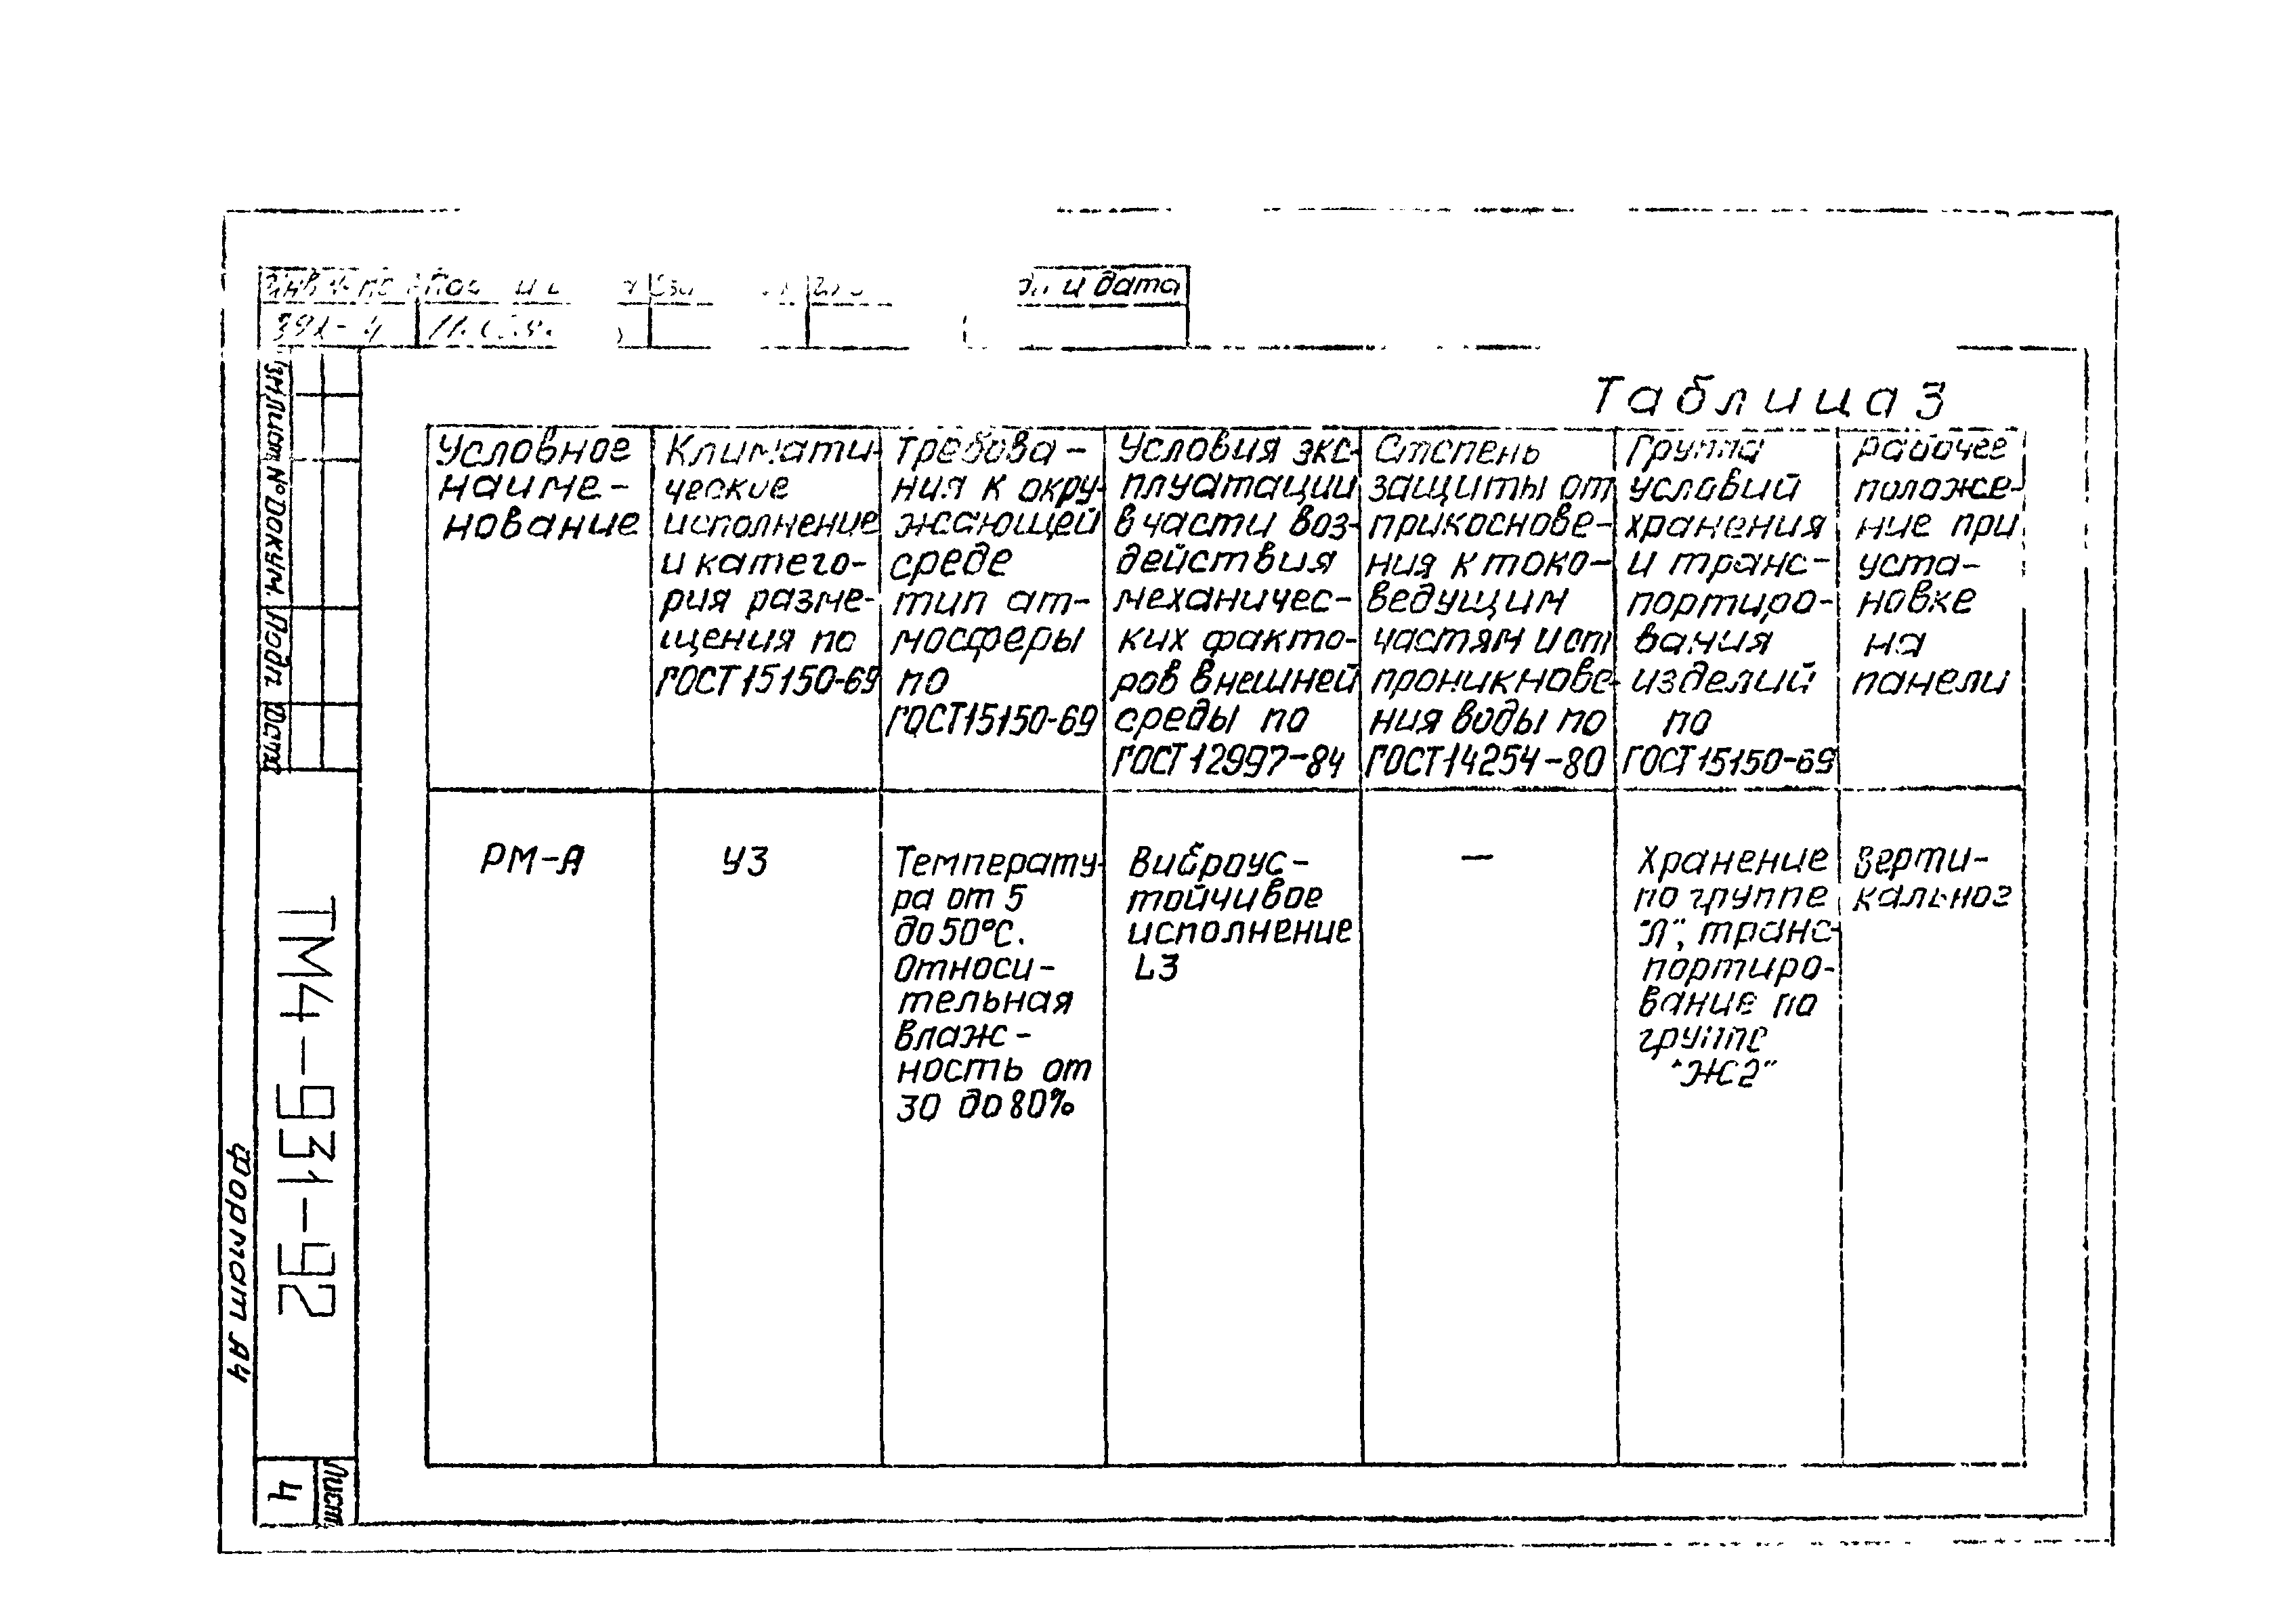 и дата
Таблица 3
Условное
наиме-
нование
Климати-
ческие
исполнение
и катего-
рия разме-
щения по
ГОСТ 15150-69
Требова-
ния к окру-
жающей
среде
тип ат-
мосферы
по
ГОСТ 15150-69
Условия экс-
плуатации
в части воз-
действия
механичес-
ких факто-
ров внешней
среды по
ГОСТ 12997-84
Степень
защиты от
прикоснове-
ния к токо-
ведущим
частям и от
проникнове-
ния воды по
ГОСТ 14254-80
Группа
условий
хранения
и транс-
портиро-
вания
изделий
по
ГОСТ 15150-69
Рабочее
положе-
ние при
уста-
новке
на
панели
РМ-А
У3
Температу-
ра от 5
до 50°С.
Относи-
тельная
влаж-
ность от
30 до 80%
Виброус-
тойчивое
исполнение
L3
—
Хранение
по группе
"Л", транс-
портиро-
вание по
группе
"Ж2"
Верти-
кальное
Изм Лист № Докум. Подп. Дата
ТМ4-931-92
Лист
4
Формат А4